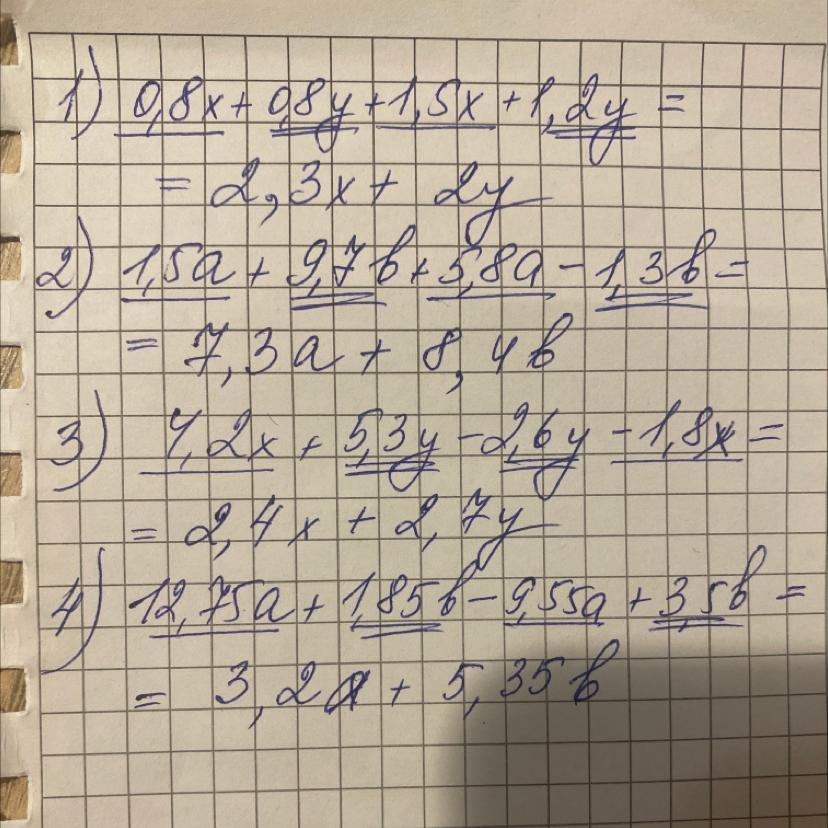 1) 0,8x + 0,8y + 1,5x + 1,2y =
= 2,3x + 2y
2) 1,5a + 9,7b + 5,8a - 1,3b =
= 7,3a + 8,4b
3) 4,2x + 5,3y - 2,6y - 1,8x =
= 2,4x + 2,7y
4) 12,75a + 1,85b - 9,55a + 3,5b =
= 3,2a + 5,35b